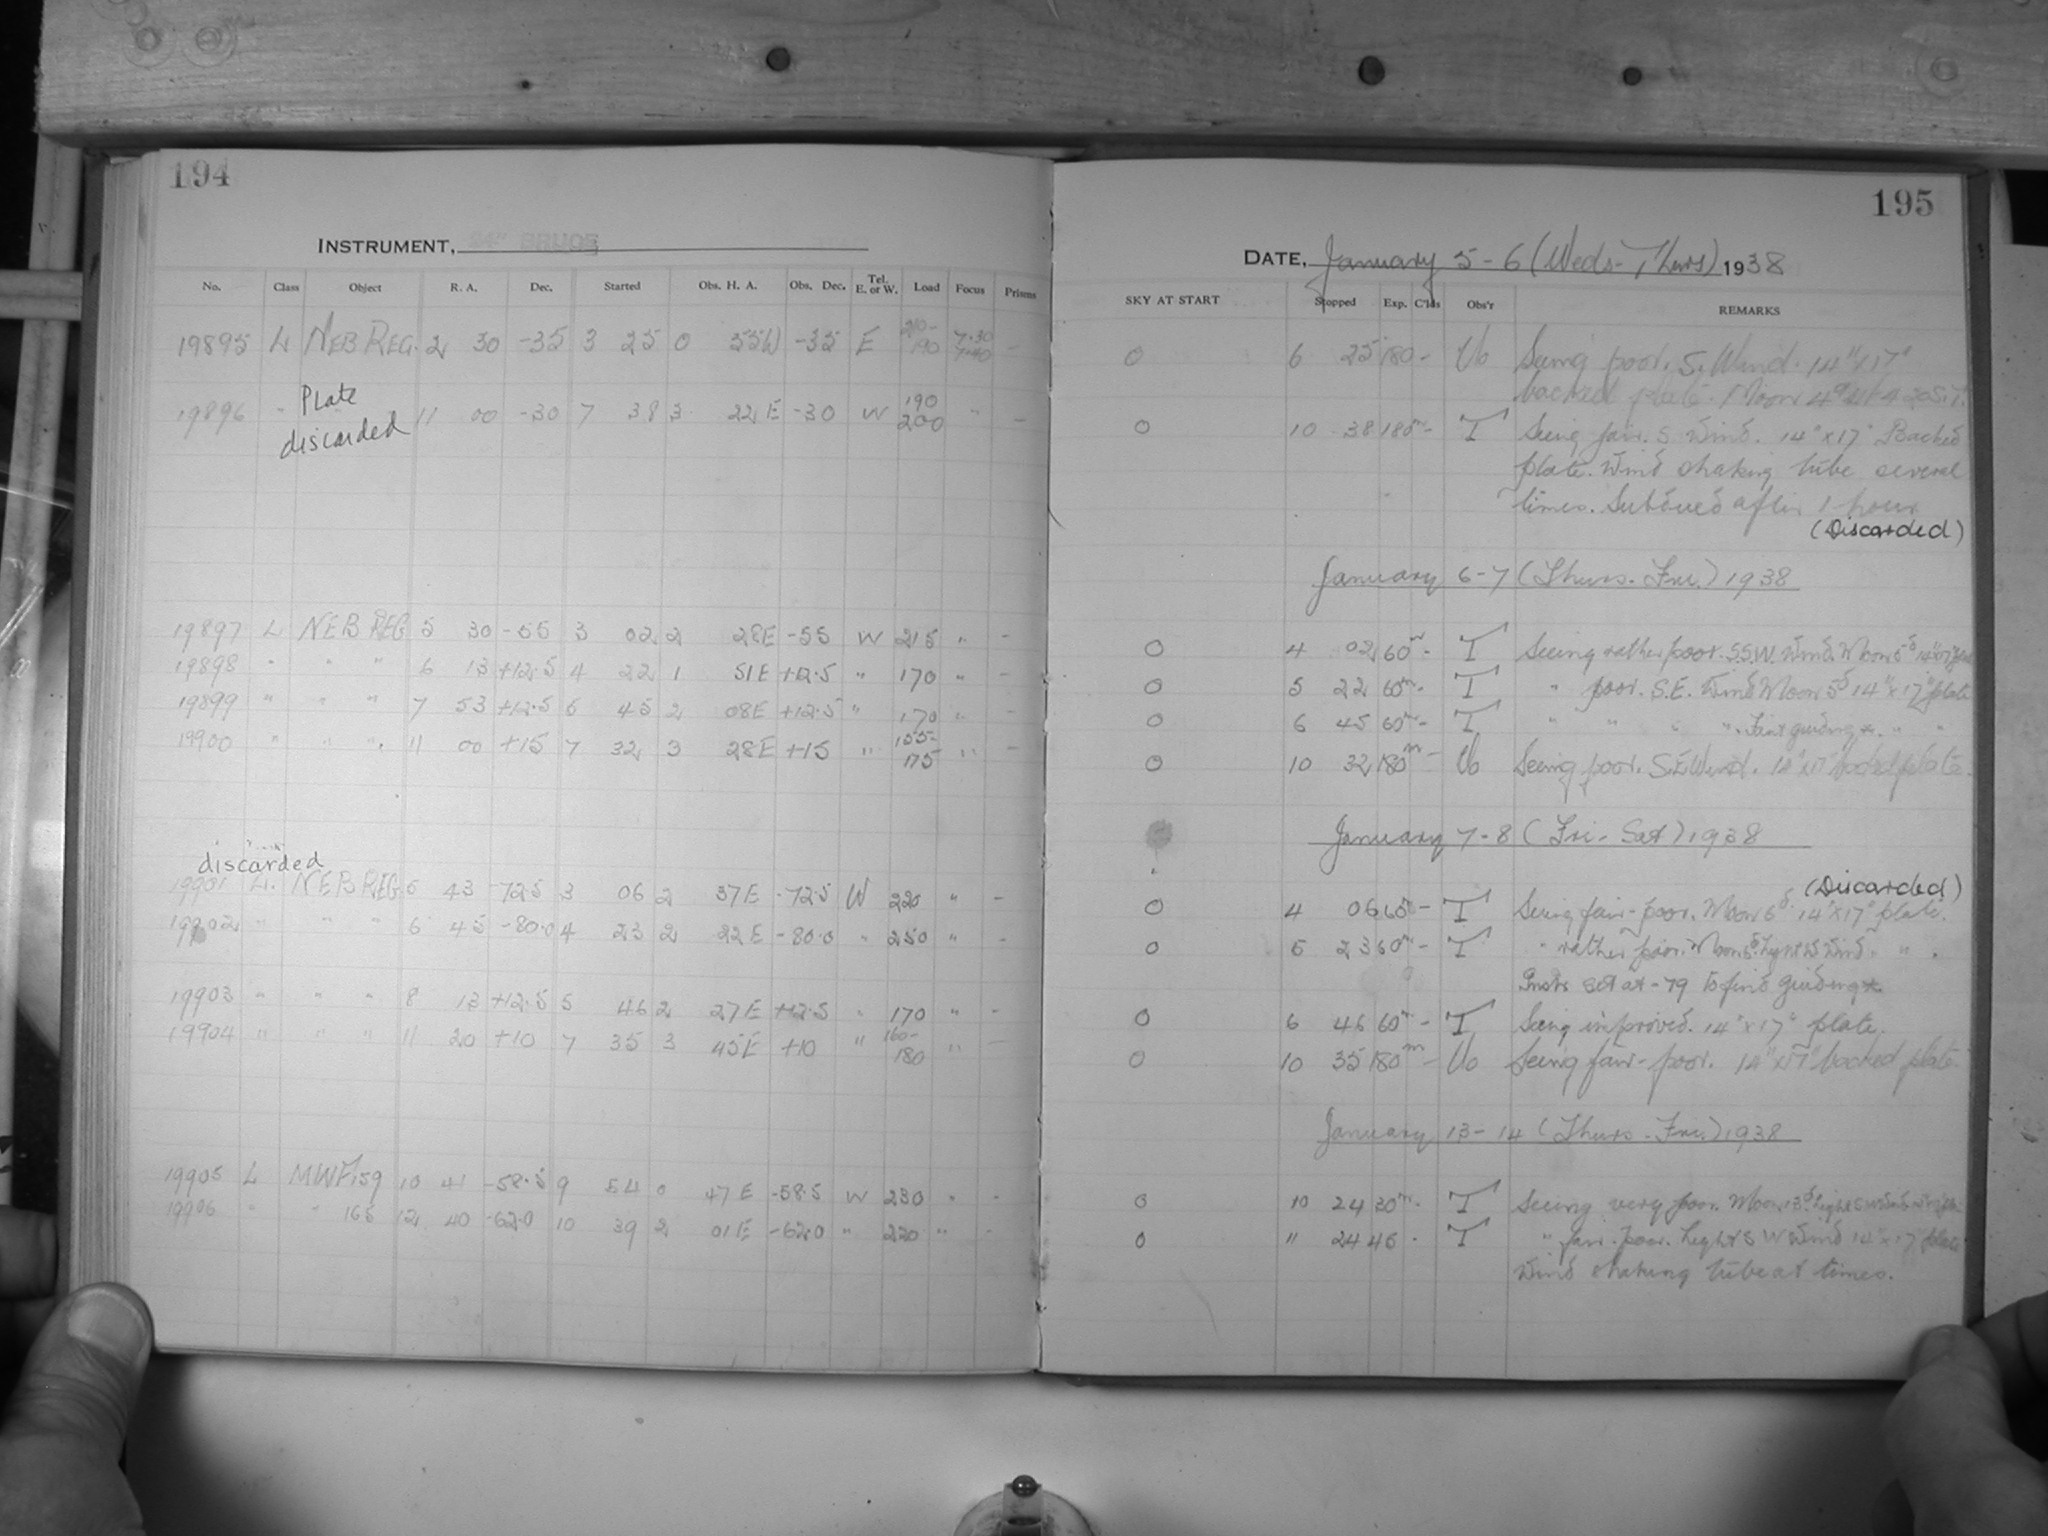 194
INSTRUMENT, 24" BRUCE
No. Class Object R. A. Dec. Started Obs. H. A. Obs. Dec. Tel. E. or W. Load Focus Prisms
19895 L NEB REG. 2 30 -35 3 25 0 55W -35 E 210- 190 7.30 7.40 -
19896 " Plate discarded 11 00 -30 7 38 3 22 E -30 W 190 200 " -
19897 L NEB REG 5 30 -55 3 02 2 28E -55 W 215 " -
19898 " " " 6 13 +12.5 4 22 1 51E +12.5 " 170 " -
19899 " " " 7 53 +12.5 5 45 2 08E +12.5 " 170 " -
19900 " " " 11 00 +15 7 32 3 28E +15 " 155- 175 " -
discarded
19901 L. NEB REG. 5 43 -72.5 3 06 2 37E -72.5 W 220 " -
19902 " " " 6 45 -80.0 4 23 2 22E -80.0 " 250 " -
19903 " " " 8 13 +12.5 5 46 2 27E +12.5 " 170 " -
19904 " " " 11 20 +10 7 35 3 45E +10 " 160- 180 " -
19905 L MWF 159 10 41 -58.5 9 54 0 47 E -58.5 W 230 " -
19906 " " 165 12 40 -62.0 10 39 2 01E -62.0 " 220 " -
195
DATE, January 5-6 (Weds-Thurs) 1938
SKY AT START Stopped Exp. C'lds Obs'r REMARKS
0 6 25 180 - Uo Seeing poor. S. Wind. 14"x17"
backed plate. Moon
0 10 38 180m - T Seeing fair. S wind. 14"x17" Backed
plate. Wind shaking tube several
times. Subdued after 1 hour
(Discarded)
January 6-7 (Thurs. Fri.) 1938
0 4 02 60m - T Seeing rather poor. S.S.W. Wind. Moon 5d 14"x17" plate
0 5 22 60m - T " poor. S.E. Wind Moon 5d 14"x17" plate
0 6 45 60m - T " " " ". Faint guiding *. " "
0 10 32 180m - Uo Seeing poor. S.E Wind. 14"x17" backed plate.
January 7-8 (Fri-Sat) 1938
(Discarded)
0 4 06 60m - T Seeing fair-poor. Moon 6d. 14"x17" plate.
0 5 23 60m - T " rather poor. Moon 6d. Light W Wind. " "
Instr set at -79 to find guiding *.
0 6 46 60m - T Seeing improved. 14"x17" plate.
0 10 35 180m - Uo Seeing fair-poor. 14"x17" backed plate
January 13-14 (Thurs-Fri.) 1938
0 10 24 30m - T Seeing very poor. Moon 13d. Light S Wind
0 11 24 45 - T " fair-poor. Light S W Wind 14"x17" plate
Wind shaking tube at times.